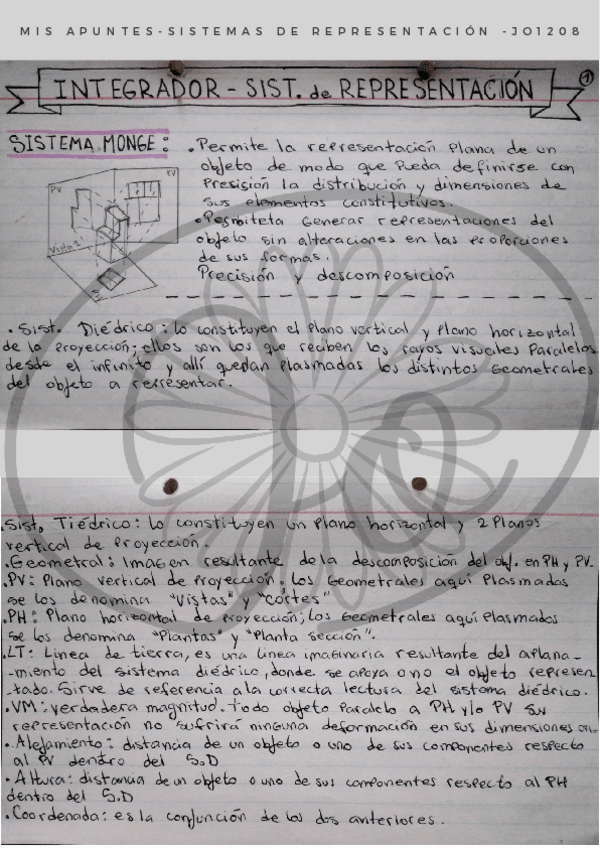 MIS APUNTES-SISTEMAS DE REPRESENTACIÓN -JO1208
INTEGRADOR - SIST. de REPRESENTACIÓN
1
SISTEMA MONGE:
• Permite la representación plana de un
objeto de modo que pueda definirse con
presisión la distribución y dimensiones de
sus elementos constitutivos.
• Permiteta generar representaciones del
objeto sin alteraciones en las proporciones
de sus formas.
Precisión y descomposición
PV
Vista 2
• Sist. Diédrico: lo constituyen el plano vertical y plano horizontal
de la proyección; ellos son los que reciben los rayos visuales paralelos
desde el infinito y allí quedan plasmadas los distintos Geometrales
del objeto a representar.
• Sist. Tiédrico: lo constituyen un plano horizontal y 2 Planos
vertical de proyección.
• Geometral: Imagen resultante de la descomposición del obj. en PH y PV.
• PV: Plano vertical de proyección; los Geometrales aquí plasmados
se los denomina "Vistas" y "Cortes"
• PH: Plano horizontal de proyección; los Geometrales aquí plasmados
se los denomina "Plantas" y "Planta sección".
• LT: Linea de tierra, es una linea imaginaria resultante del aplana-
-miento del sistema diédrico, donde se apoya o no el objeto represen-
-tado. Sirve de referencia a la correcta lectura del sistema diédrico.
• VM: verdadera magnitud. Todo objeto paralelo a PH y/o PV su
representación no sufrirá ninguna deformación en sus dimensiones
• Alejamiento: distancia de un objeto o uno de sus componentes respecto
al PV dentro del S.D
• Altura: distancia de un objeto o uno de sus componentes respecto al PH
dentro del S.D
• Coordenada: es la conjunción de los dos anteriores.